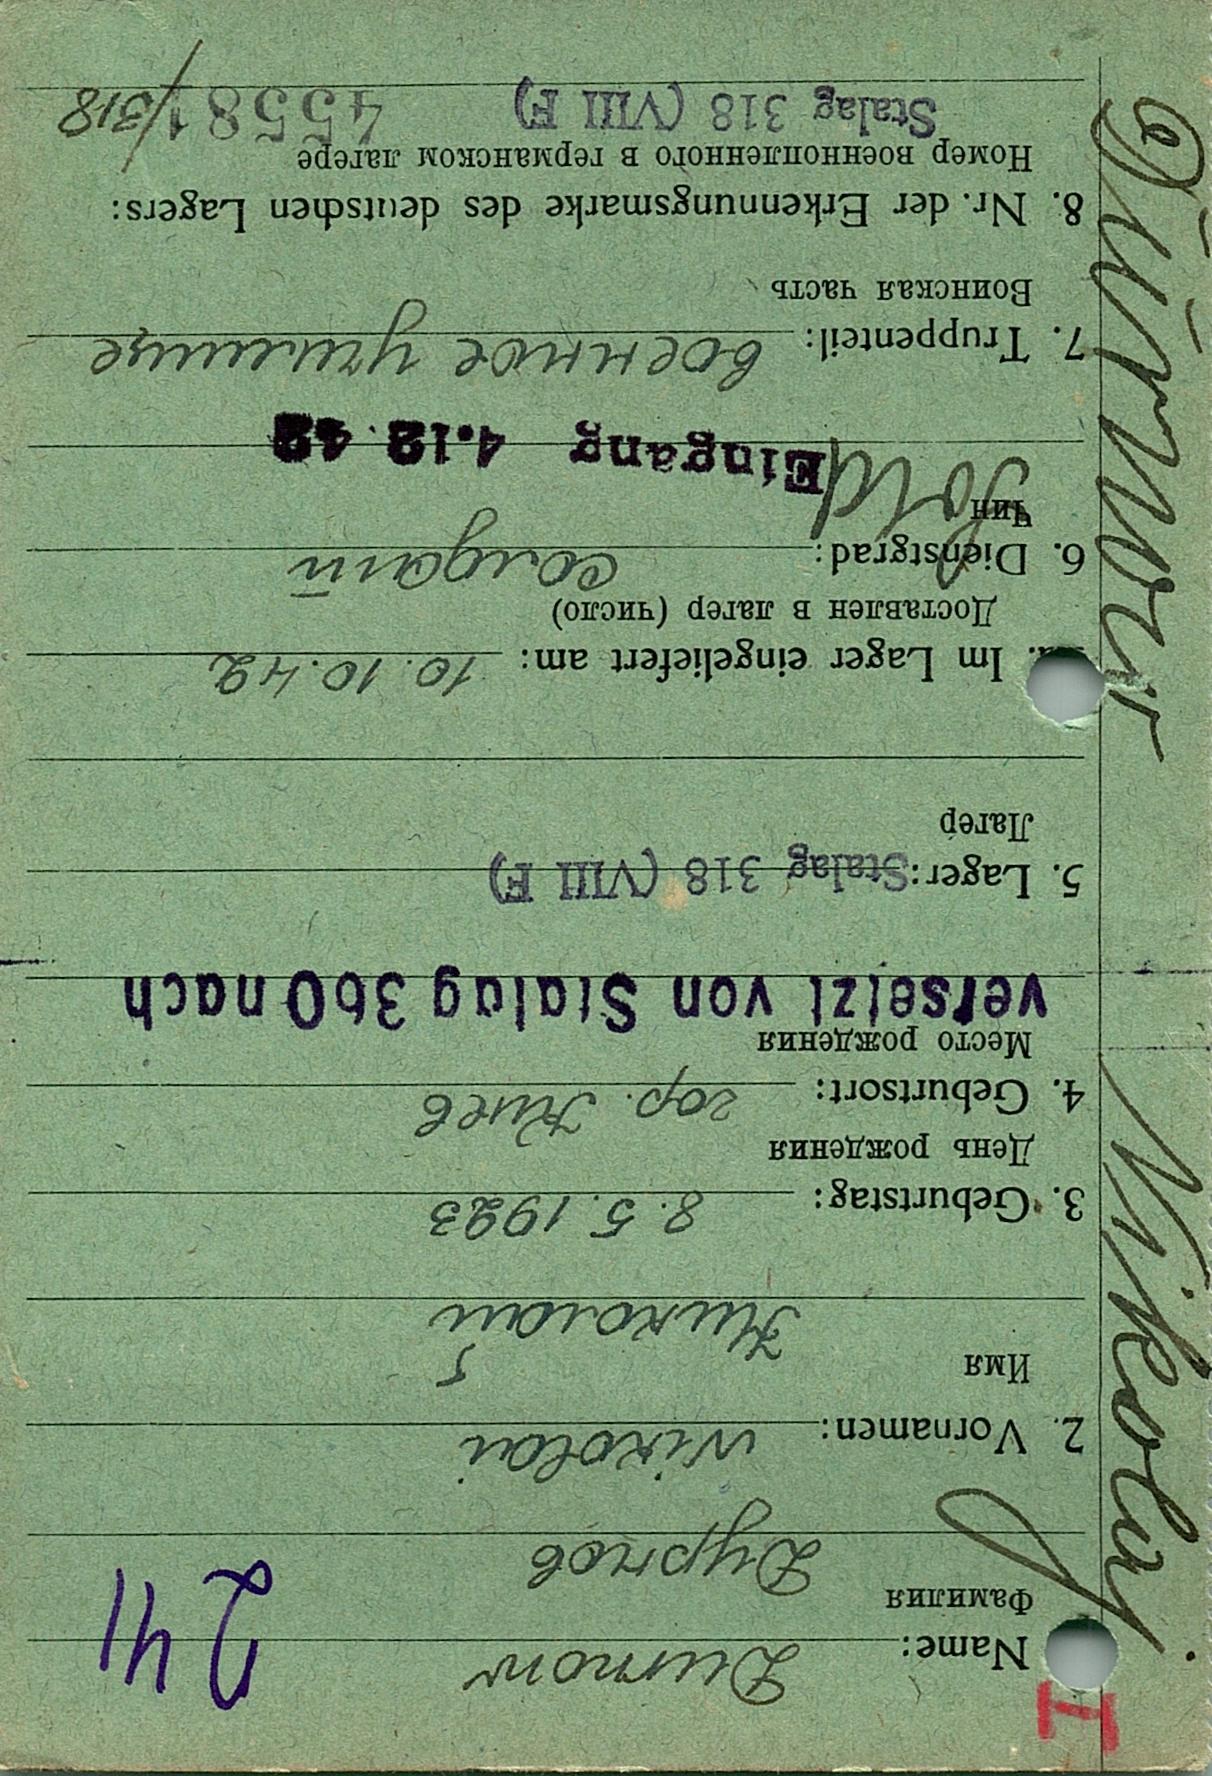 I
241
Name: Durnow
Фамилия
Дурнов
2. Vornamen: Nikolai
Имя
Николай
3. Geburtstag: 8.5.1923
День рождения
4. Geburtsort: гор. Киев
Место рождения
versetzt von Stalag 360 nach
5. Lager: Stalag 318 (VIII F)
Лагерь
Im Lager eingeliefert am: 10.10.42
Доставлен в лагер (число)
6. Dienstgrad: солдат
Чин
Sold
Eingang 4.12.42
7. Truppenteil: военное училище
Воинская часть
8. Nr. der Erkennungsmarke des deutschen Lagers:
Номер военнопленного в германском лагере
Stalag 318 (VIII F) 45581/318
Nikolaj